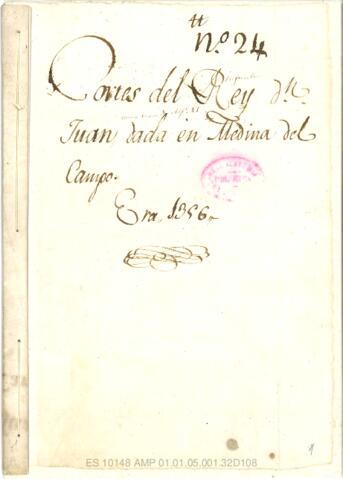 tt
nº. 24
Cortes del Rey dn.
Juan dada en Medina del
Campo.
Era 1356.
ES 10148 AMP 01.01.05.001.32D108